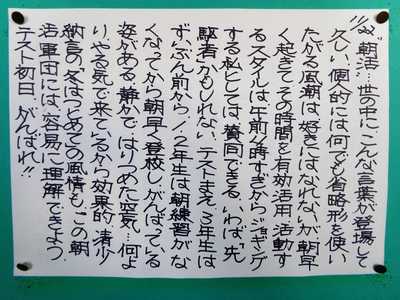 11/22 "朝活"…世の中にこんな言葉が登場して
久しい。個人的には何でも省略形を使い
たがる風潮は好きにはなれないが、朝早
く起きてその時間を有効活用、活動す
るスタイルは、午前4時すぎから、ジョギング
する私としては、賛同できる。いわば"先
駆者"かもしれない。テストまえ、3年生は
ずいぶん前から、1、2年生は朝練習がな
くなってから朝早く登校し、がんばっている
姿がある。静かで、はりつめた空気…何よ
り、やる気で来ているから効果的。清少
納言の「冬はつとめて」の風情も、この朝
活軍団には、容易に理解できよう。
テスト初日 がんばれ!!